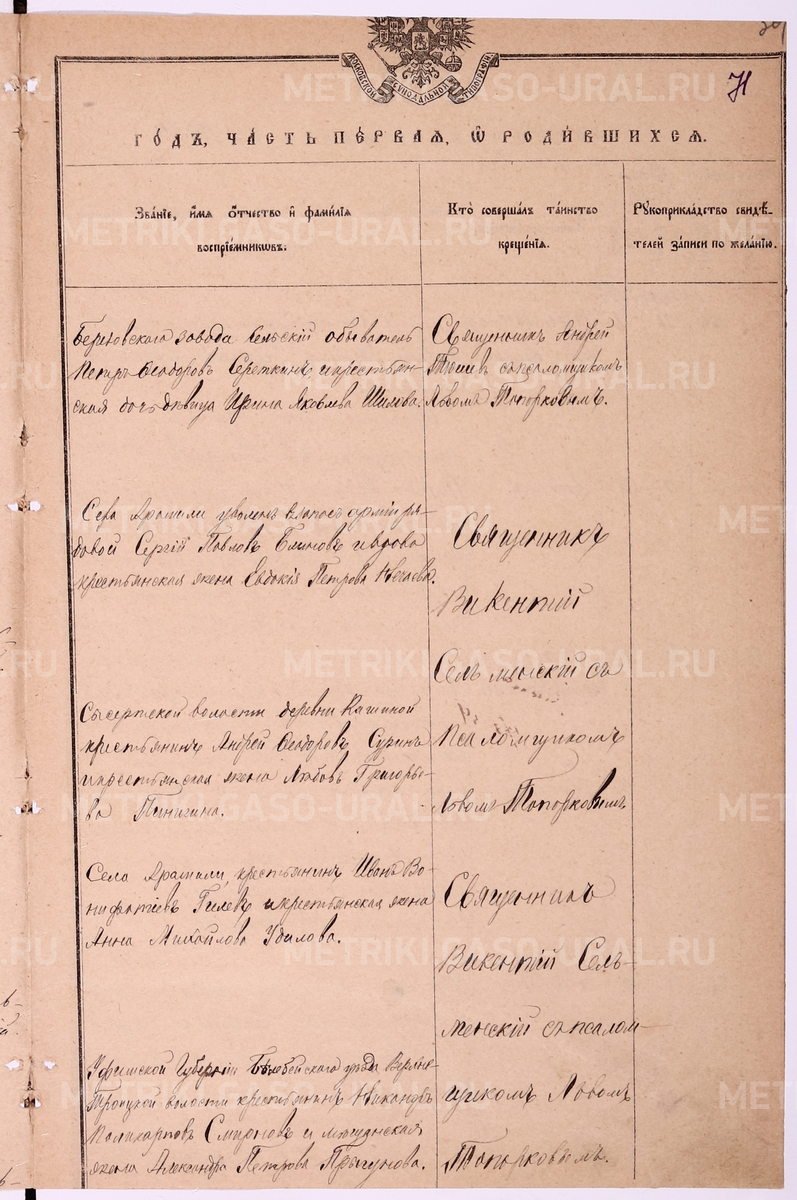 МОСКОВСКОЙ СѴНОДАЛЬНОЙ ТИПОГРАФІИ
Н
ГОДЪ, ЧАСТЬ ПЕРВАЯ, Ѡ РОДИВШИХСЯ.
Званіе, имя отчество и фамилія
воспріемниковъ.
Кто совершалъ таинство
крещенія.
Рукоприкладство свидѣ-
телей записи по желанію.
Березовскаго завода сельскій обыватель
Петръ Ѳеодоровъ Сереткинъ и крестьян-
ская дочь девица Ирина Яковлева Шилова.
Священникъ Андрей
съ псаломщикомъ
Львомъ Топорковымъ.
Села Арамили уволен. въ запасъ арміи ря-
довой Сергій Павловъ Блиновъ и вдова
крестьянская жена Евдокія Петрова Нечаева.
Священникъ
Викентій
Сельменскій съ
псаломщикомъ
Львомъ Топорковымъ
Сысертской волости деревни Кашиной
крестьянинъ Андрей Ѳеодоровъ Суринъ
и крестьянская жена Любовь Григорье-
ва Пинигина.
Села Арамили, крестьянинъ Иванъ Во-
нифатіевъ Гилевъ и крестьянская жена
Анна Михайлова Удилова.
Священникъ
Викентій Сель-
менскій съ псалом-
щикомъ Львомъ
Топорковымъ.
Уфимской Губерніи Белебейского уезда Верхне-
Троицкой волости крестьянинъ Никандръ
Поликарповъ Смирновъ и мещанская
жена Александра Петрова Прыгунова.
METRIKI.GASO-URAL.RU